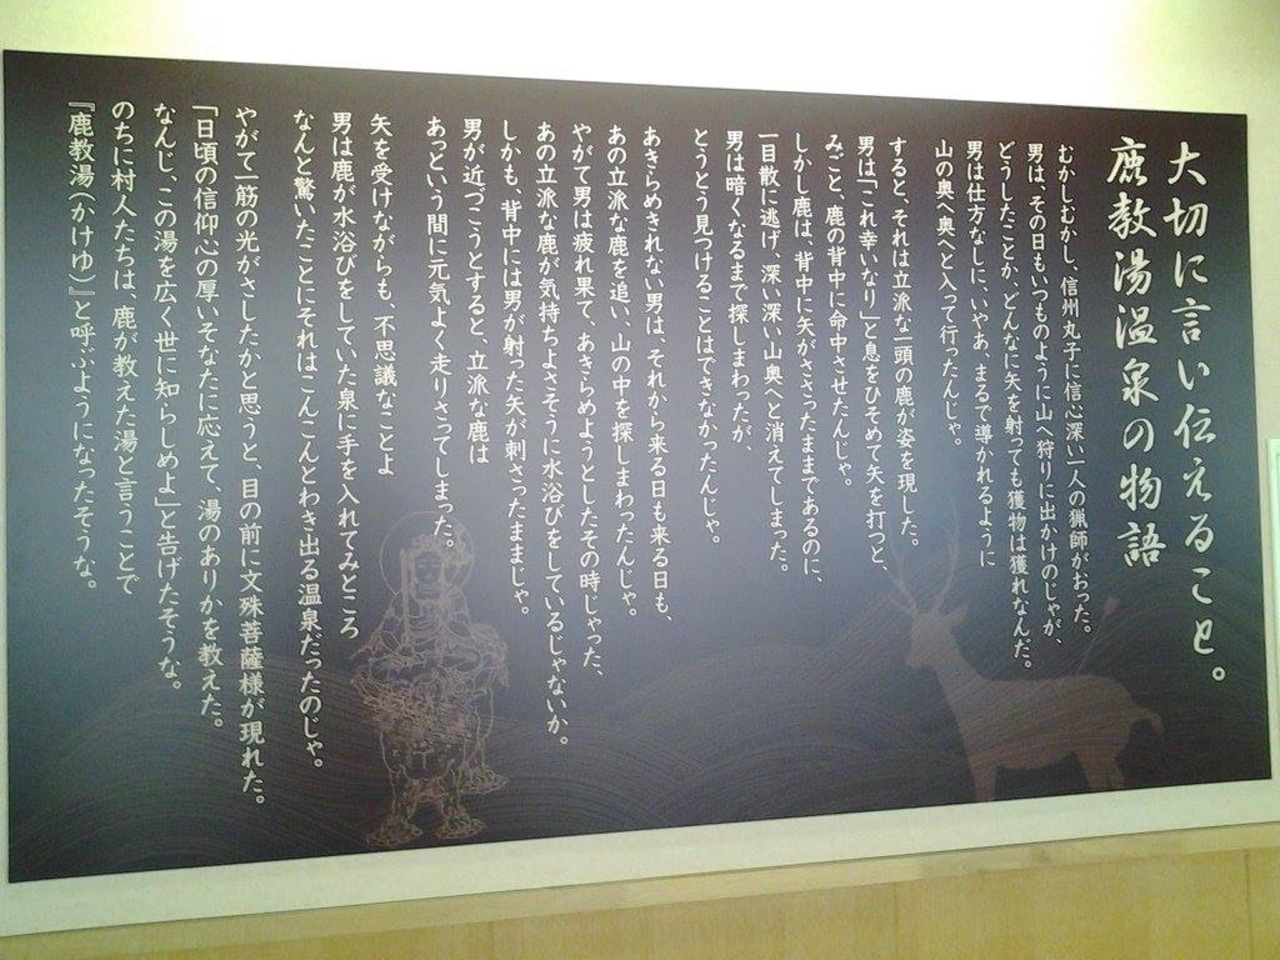 大切に言い伝えること。
鹿教湯温泉の物語
むかしむかし、信州丸子に信心深い一人の猟師がおった。
男は、その日もいつものように山へ狩りに出かけのじゃが、
どうしたことか、どんなに矢を射っても獲物は獲れなんだ。
男は仕方なしに、いやあ、まるで導かれるように
山の奥へ奥へと入って行ったんじゃ。
すると、それは立派な一頭の鹿が姿を現した。
男は「これ幸いなり」と息をひそめて矢を打つと、
みごと、鹿の背中に命中させたんじゃ。
しかし鹿は、背中に矢がささったままであるのに、
一目散に逃げ、深い深い山奥へと消えてしまった。
男は暗くなるまで探しまわったが、
とうとう見つけることはできなかったんじゃ。
あきらめきれない男は、それから来る日も来る日も、
あの立派な鹿を追い、山の中を探しまわったんじゃ。
やがて男は疲れ果て、あきらめようとしたその時じゃった、
あの立派な鹿が気持ちよさそうに水浴びをしているじゃないか。
しかも、背中には男が射った矢が刺さったままじゃ。
男が近づこうとすると、立派な鹿は
あっという間に元気よく走りさってしまった。
矢を受けながらも、不思議なことよ
男は鹿が水浴びをしていた泉に手を入れてみところ
なんと驚いたことにそれはこんこんとわき出る温泉だったのじゃ。
やがて一筋の光がさしたかと思うと、目の前に文殊菩薩様が現れた。
「日頃の信仰心の厚いそなたに応えて、湯のありかを教えた。
なんじ、この湯を広く世に知らしめよ」と告げたそうな。
のちに村人たちは、鹿が教えた湯と言うことで
『鹿教湯（かけゆ）』と呼ぶようになったそうな。